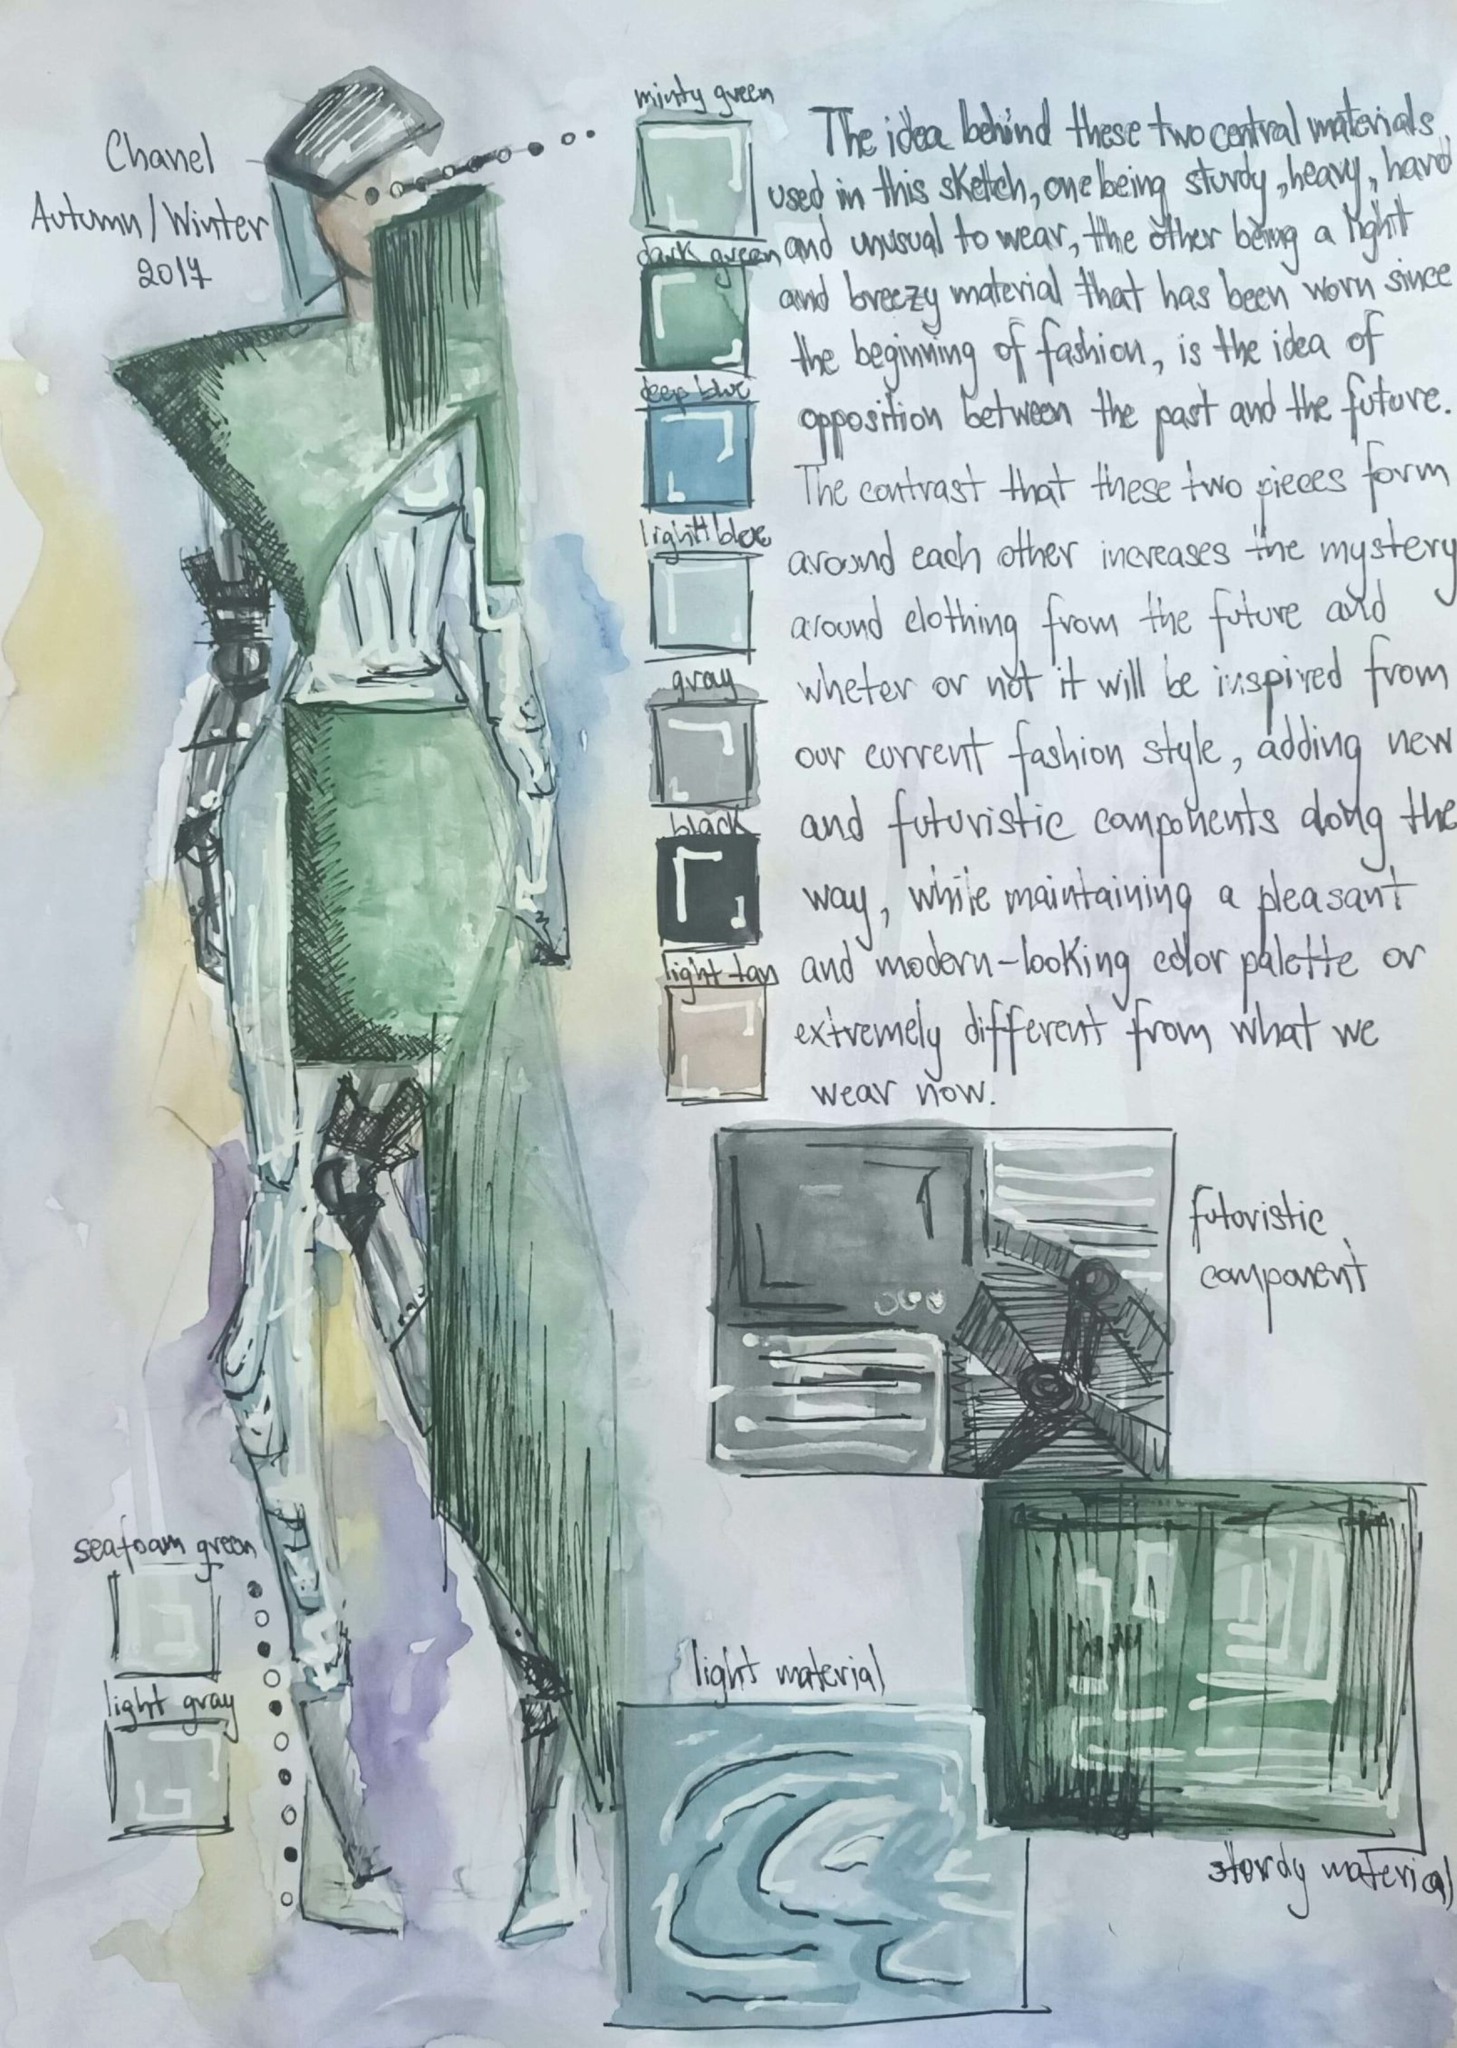 Chanel
Autumn/Winter
2017
minty green
dark green
deep blue
light blue
gray
black
light tan
The idea behind these two central materials
used in this sketch, one being sturdy, heavy, hard
and unusual to wear, the other being a light
and breezy material that has been worn since
the beginning of fashion, is the idea of
opposition between the past and the future.
The contrast that these two pieces form
around each other increases the mystery
around clothing from the future and
wheter or not it will be inspired from
our current fashion style, adding new
and futuristic components along the
way, while maintaining a pleasant
and modern-looking color palette or
extremely different from what we
wear now.
futuristic
component
seafoam green
light gray
light material
sturdy material